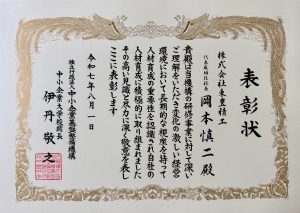 表彰状
株式会社東豊精工
代表取締役社長
岡本慎二殿
貴殿は当機構の研修事業に対して深い
ご理解をいただき変化の激しい経営
環境において長期的な視座を持って
人材育成の重要性を認識され自社の
人材育成に積極的に取り組まれました
その高い見識と尽力に深く敬意を表し
ここに表彰します
令和七年八月一日
独立行政法人中小企業基盤整備機構
中小企業大学校総長
伊丹敬之